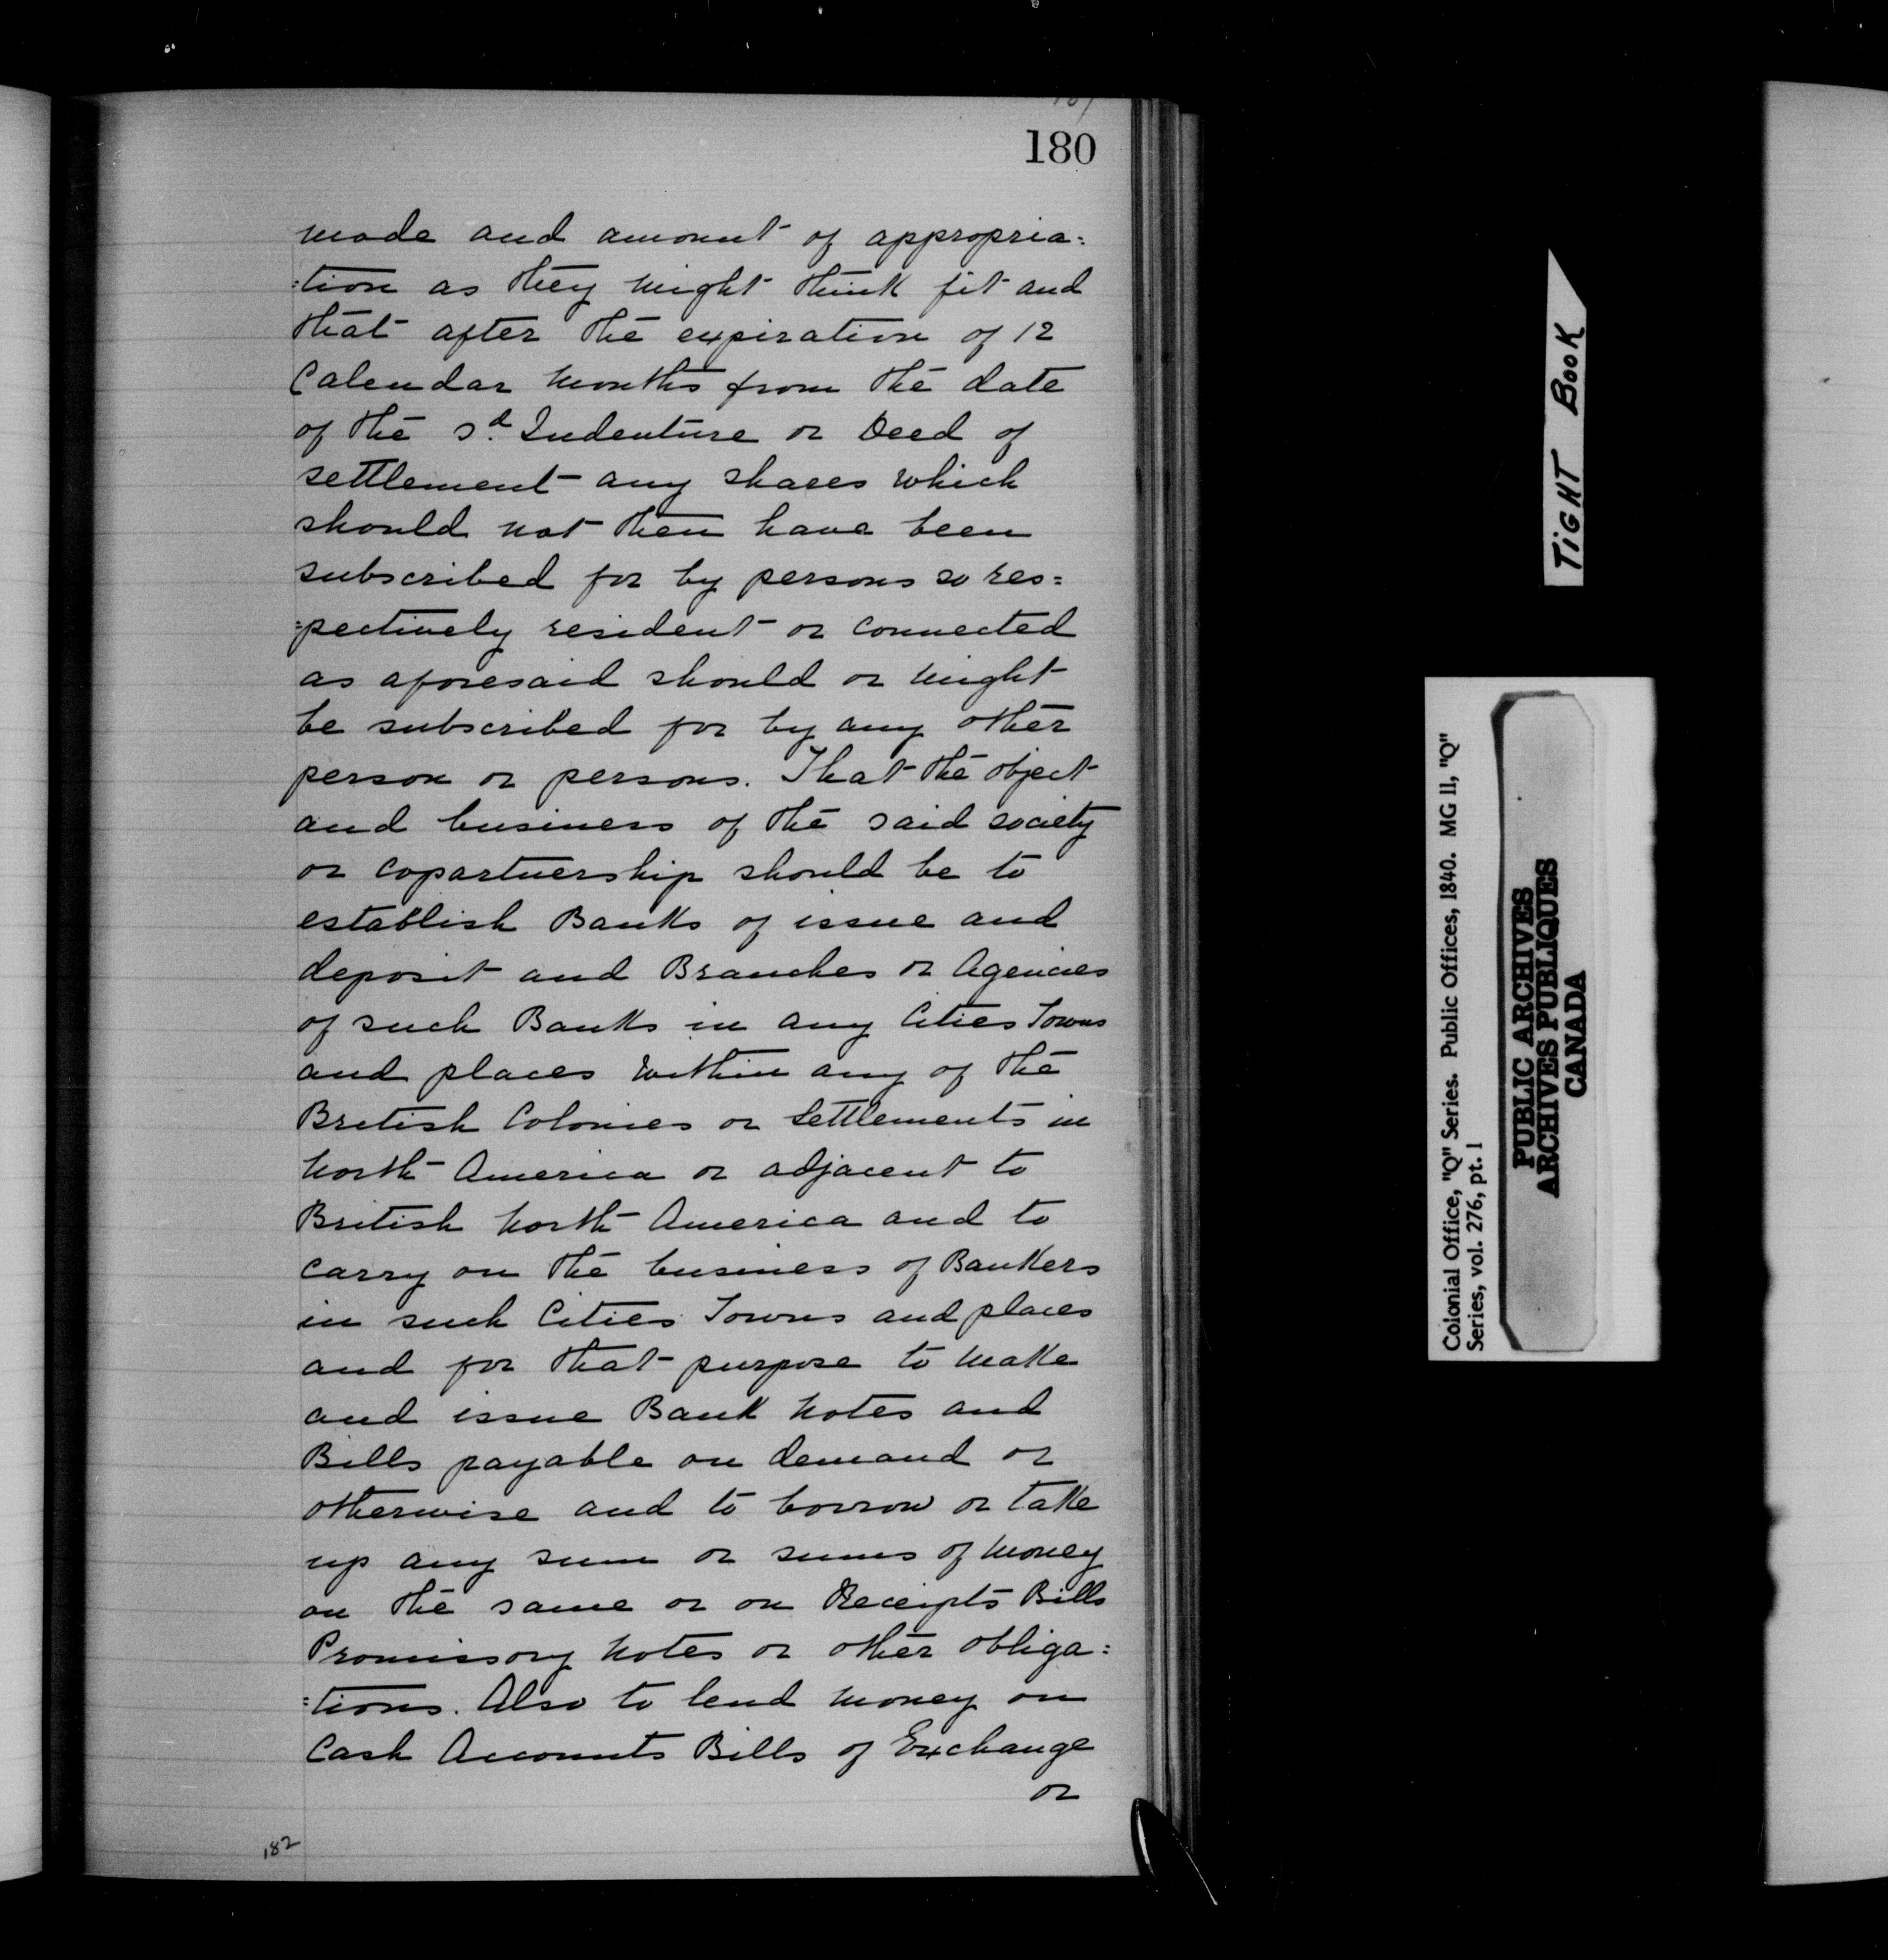 180
mode and amount of appropria=
=tion as they might think fit and
that after the expiration of 12
Calendar months from the date
of the sd. Indenture or Deed of
settlement any shares which
should not then have been
subscribed for by persons so res=
=pectively resident or connected
as aforesaid should or might
be subscribed for by any other
person or persons. That the object
and business of the said society
or copartnership should be to
establish Banks of issue and
deposit and Branches or Agencies
of such Banks in any Cities Towns
and places within any of the
British Colonies or Settlements in
North America or adjacent to
British North America and to
carry on the business of Bankers
in such Cities Towns and places
and for that purpose to make
and issue Bank Notes and
Bills payable on demand or
otherwise and to borrow or take
up any sum or sums of money
on the same or on Receipts Bills
Promissory Notes or other obliga=
=tions. Also to lend money on
Cash Accounts Bills of Exchange
or
182
TIGHT BOOK
Colonial Office, "Q" Series. Public Offices, 1840. MG 11, "Q"
Series, vol. 276, pt. 1
PUBLIC ARCHIVES
ARCHIVES PUBLIQUES
CANADA